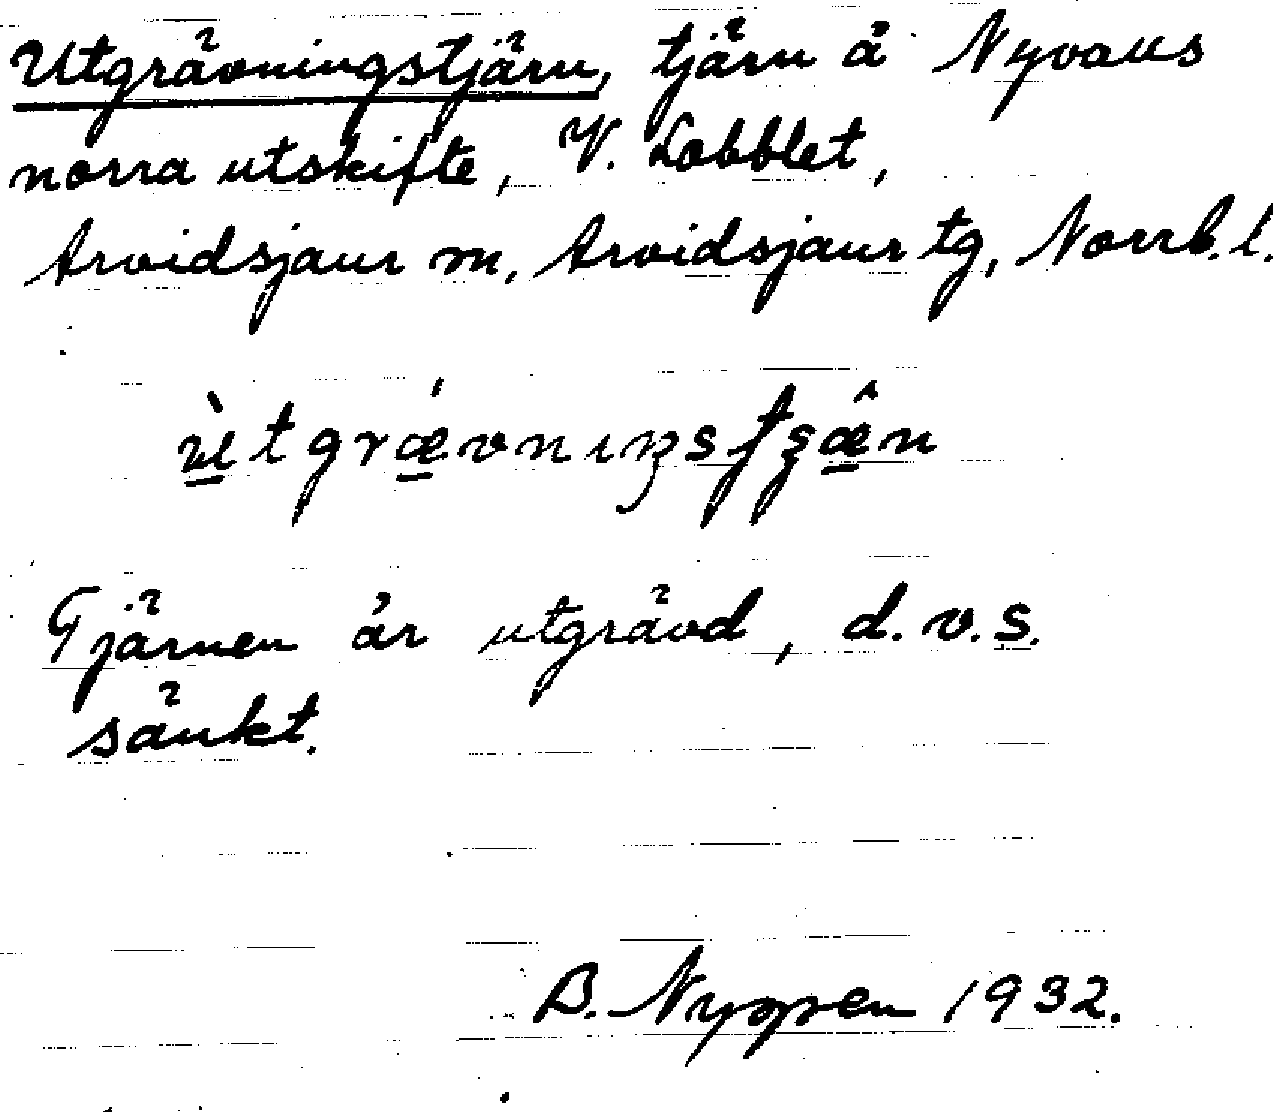 Utgrävningstjärn, tjärn å Nyvalls
norra utskifte, V. Lobblet,
Arvidsjaur m, Arvidsjaur tg, Norrb. l.
Tjärnen är utgrävd, d.v.s.
sänkt.
B. Nygren 1932.